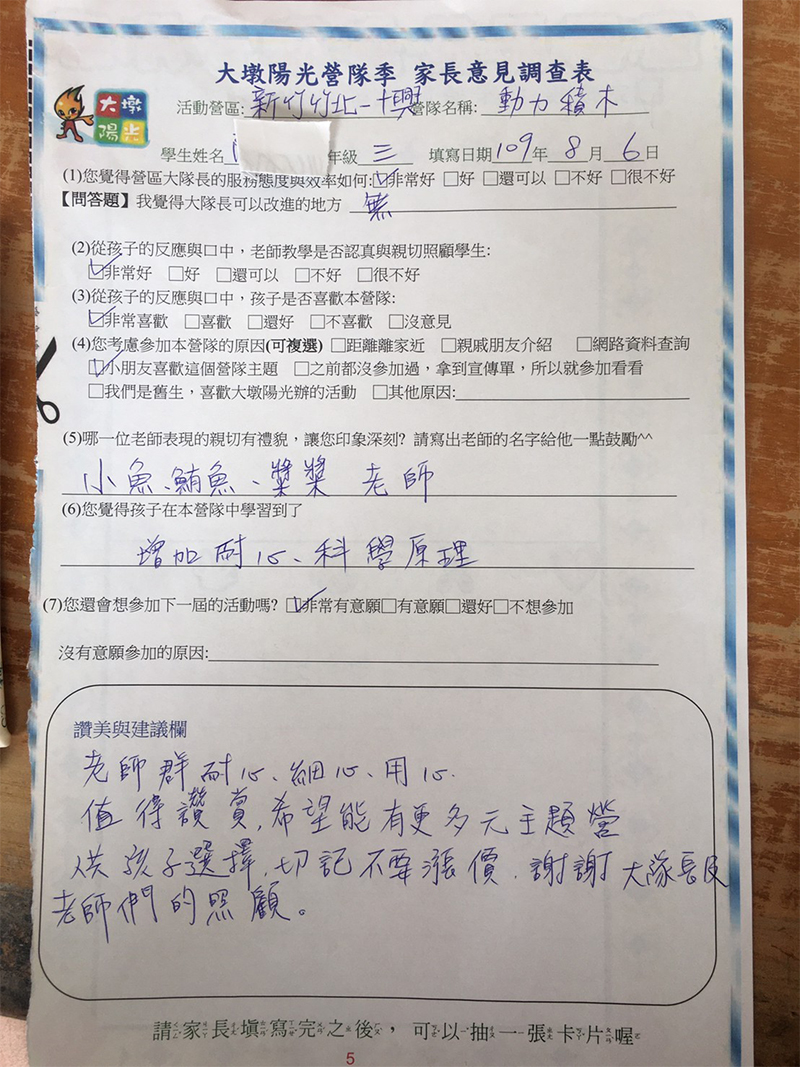 大墩陽光營隊季 家長意見調查表
大墩
陽光
活動營區: 新竹竹北-十興 營隊名稱: 動力積木
學生姓名 年級 三 填寫日期 109 年 8 月 6 日
(1)您覺得營區大隊長的服務態度與效率如何:☑非常好 □好 □還可以 □不好 □很不好
【問答題】我覺得大隊長可以改進的地方 無
(2)從孩子的反應與口中，老師教學是否認真與親切照顧學生:
☑非常好 □好 □還可以 □不好 □很不好
(3)從孩子的反應與口中，孩子是否喜歡本營隊:
☑非常喜歡 □喜歡 □還好 □不喜歡 □沒意見
(4)您考慮參加本營隊的原因(可複選) □距離離家近 □親戚朋友介紹 □網路資料查詢
☑小朋友喜歡這個營隊主題 □之前都沒參加過，拿到宣傳單，所以就參加看看
□我們是舊生，喜歡大墩陽光辦的活動 □其他原因:
(5)哪一位老師表現的親切有禮貌，讓您印象深刻? 請寫出老師的名字給他一點鼓勵^^
小魚、鮪魚、槳槳 老師
(6)您覺得孩子在本營隊中學習到了
增加耐心、科學原理
(7)您還會想參加下一屆的活動嗎? ☑非常有意願□有意願□還好□不想參加
沒有意願參加的原因:
讚美與建議欄
老師群耐心、細心、用心.
值得讚賞,希望能有更多元主題營
供孩子選擇,切記不要漲價.謝謝大隊長及
老師們的照顧。
請家長填寫完之後，可以抽一張卡片喔
5